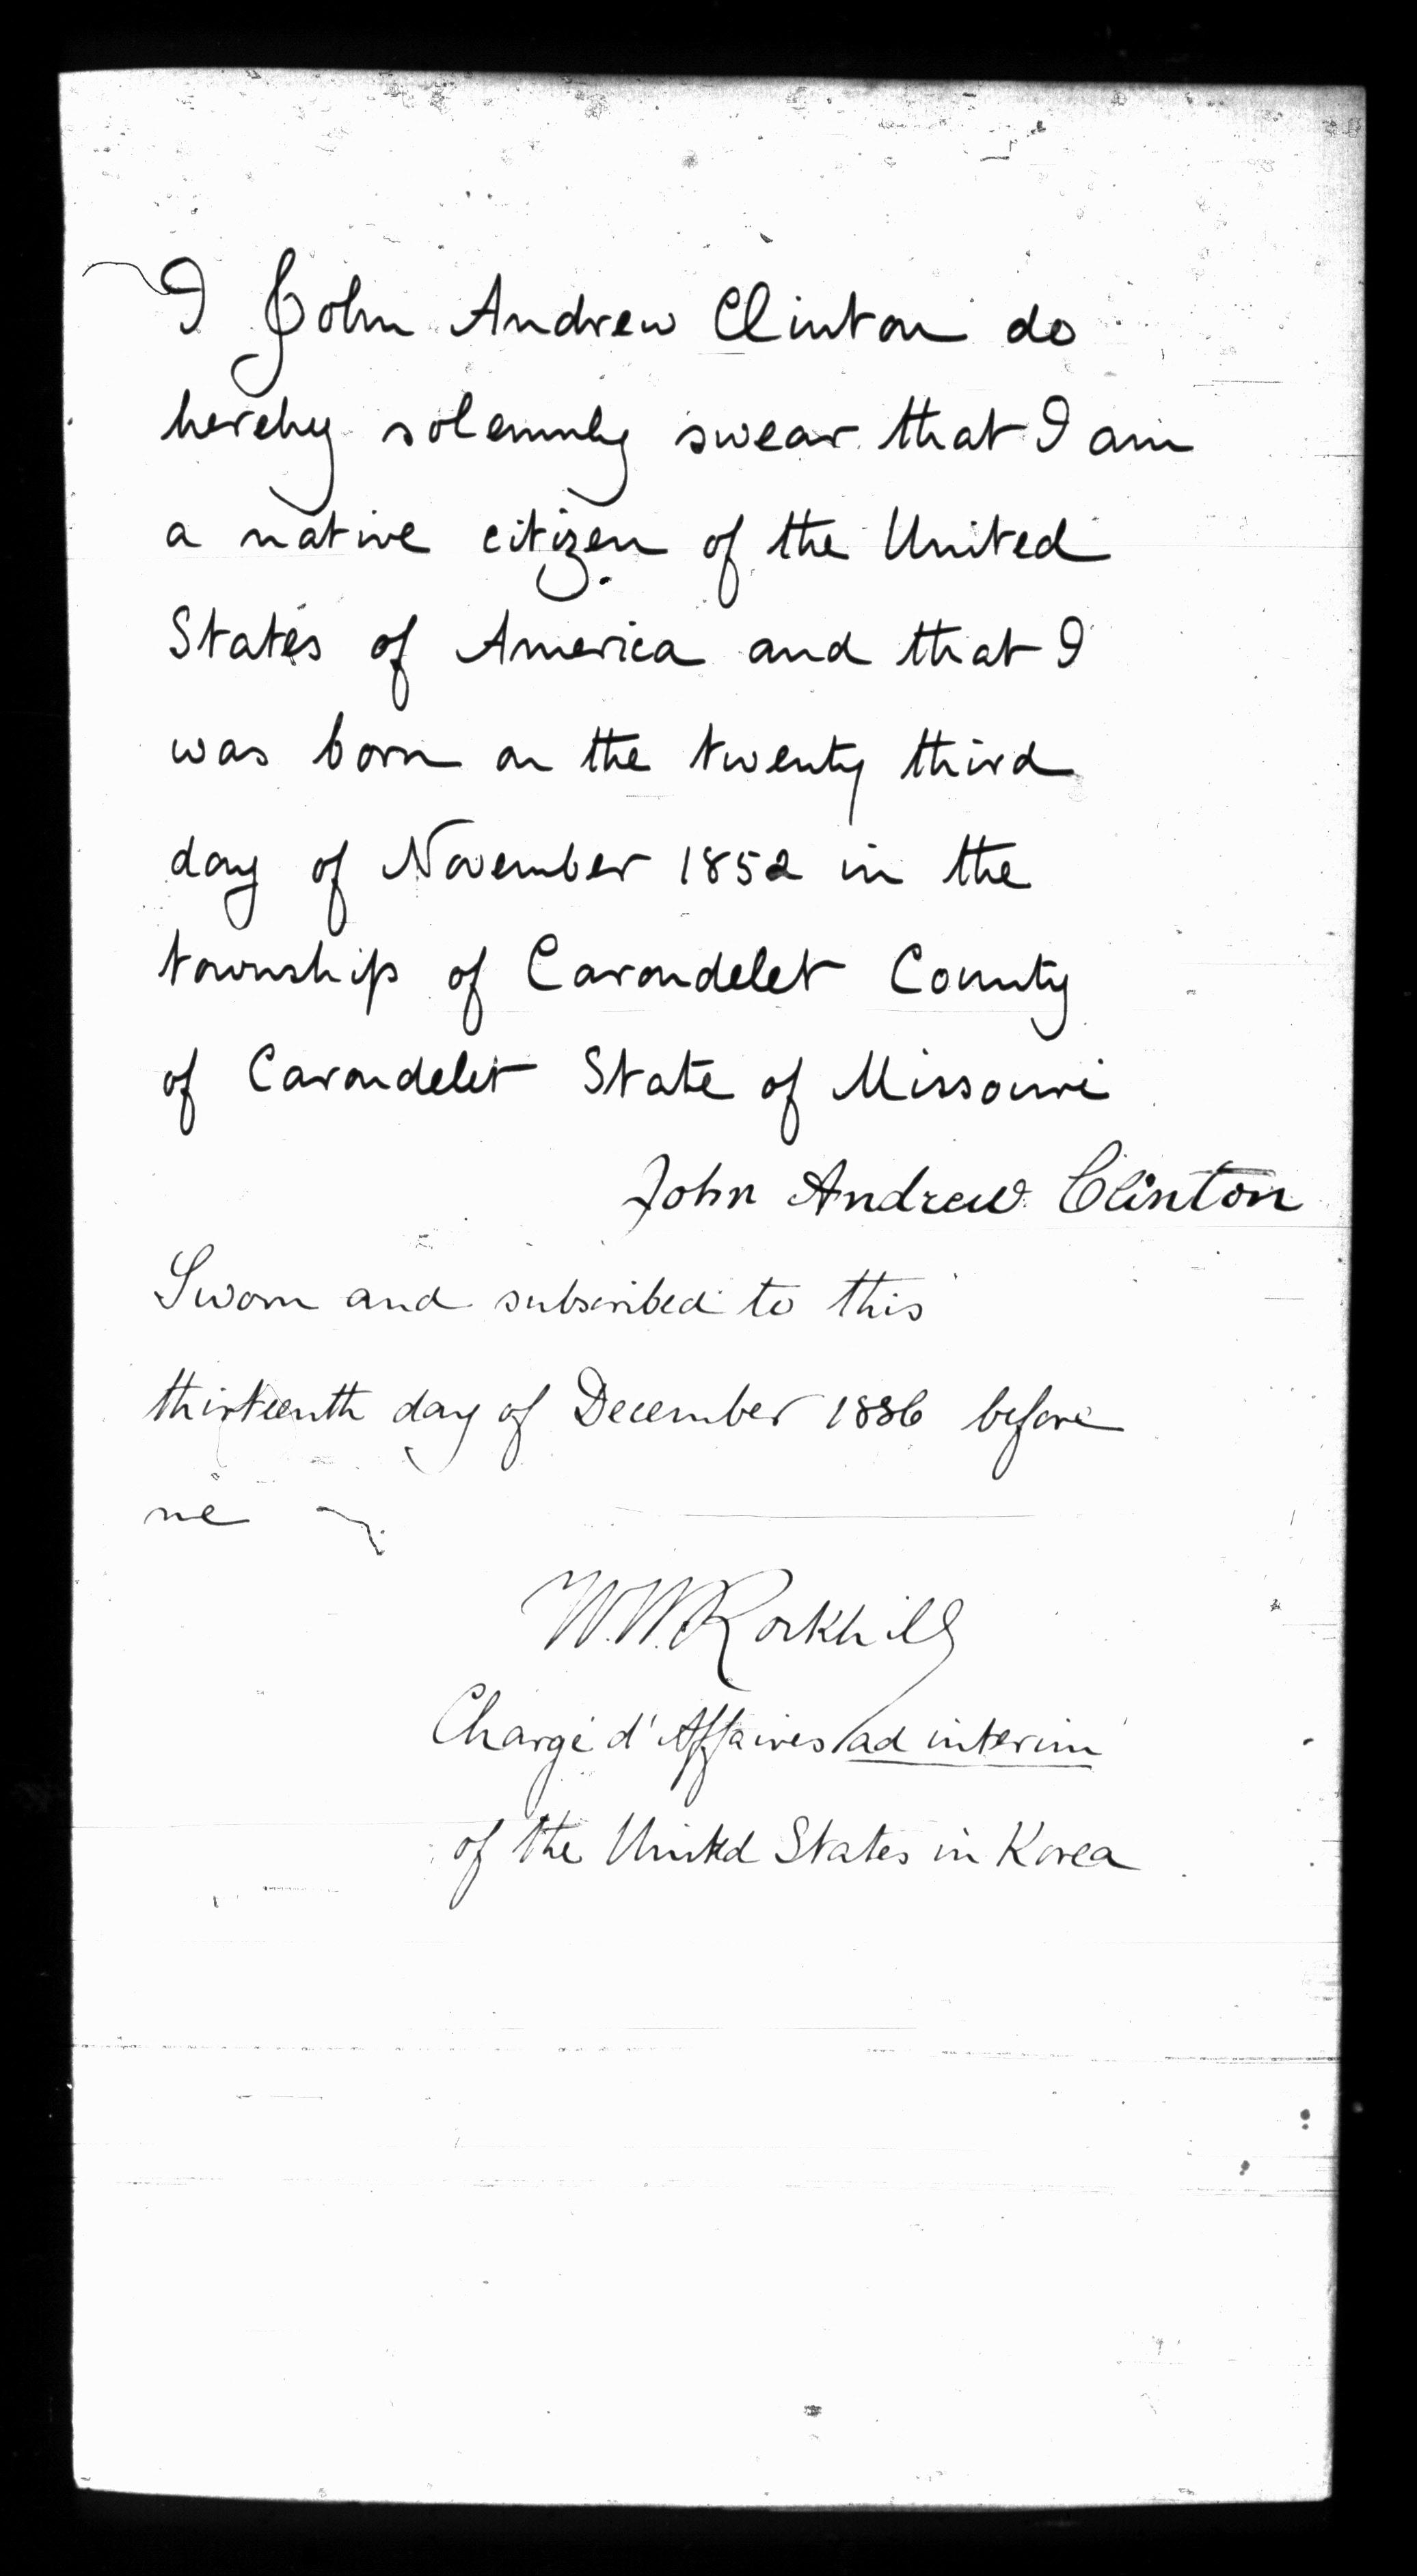 I John Andrew Clinton do
hereby solemnly swear that I am
a native citizen of the United
States of America and that I
was born on the twenty third
day of November 1852 in the
township of Carondelet County
of Carondelet State of Missouri
John Andrew Clinton
Sworn and subscribed to this
thirteenth day of December 1886 before
me
W.W. Rockhill
Chargé d'Affaires ad interim
of the United States in Korea